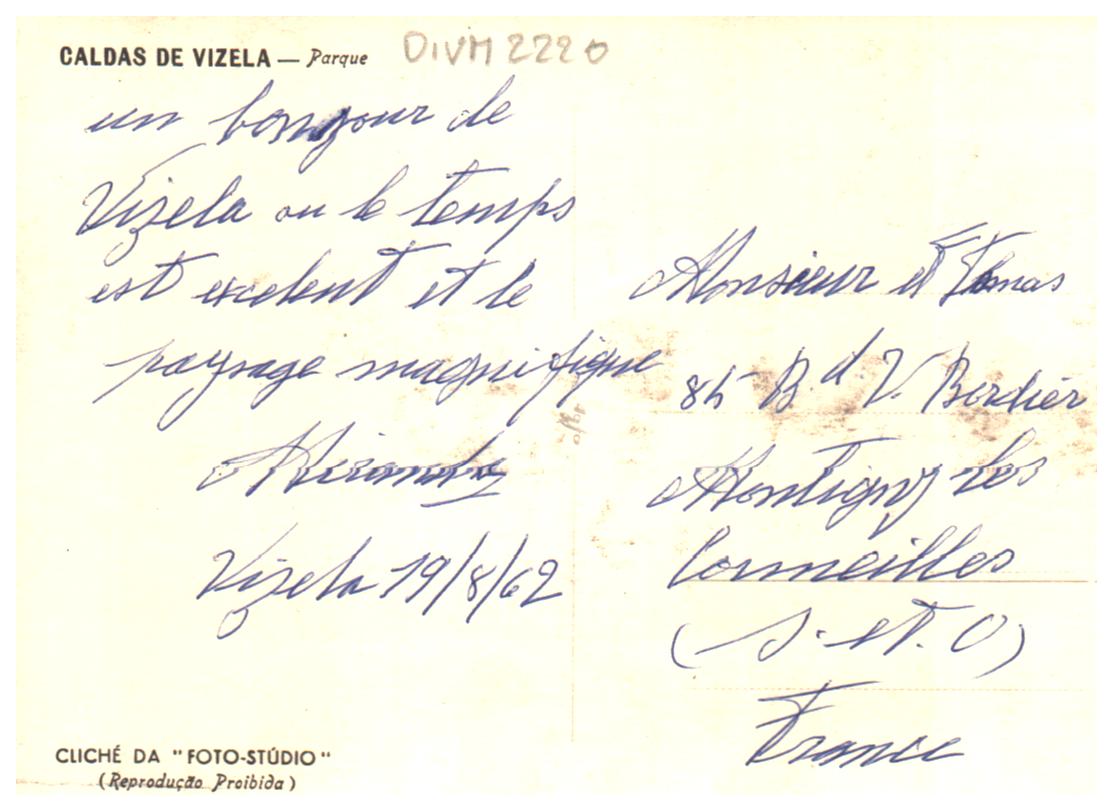 CALDAS DE VIZELA — Parque
DIVM 2220
un bonjour de
Vizela ou le temps
est excelent et le
paysage magnifique
Miranda
Vizela 19/8/62
Monsieur et
85 Bd. V. Bordier
Montigny les
Cormeilles
(S. et. O)
France
CLICHÉ DA "FOTO-STÚDIO"
(Reprodução Proibida)